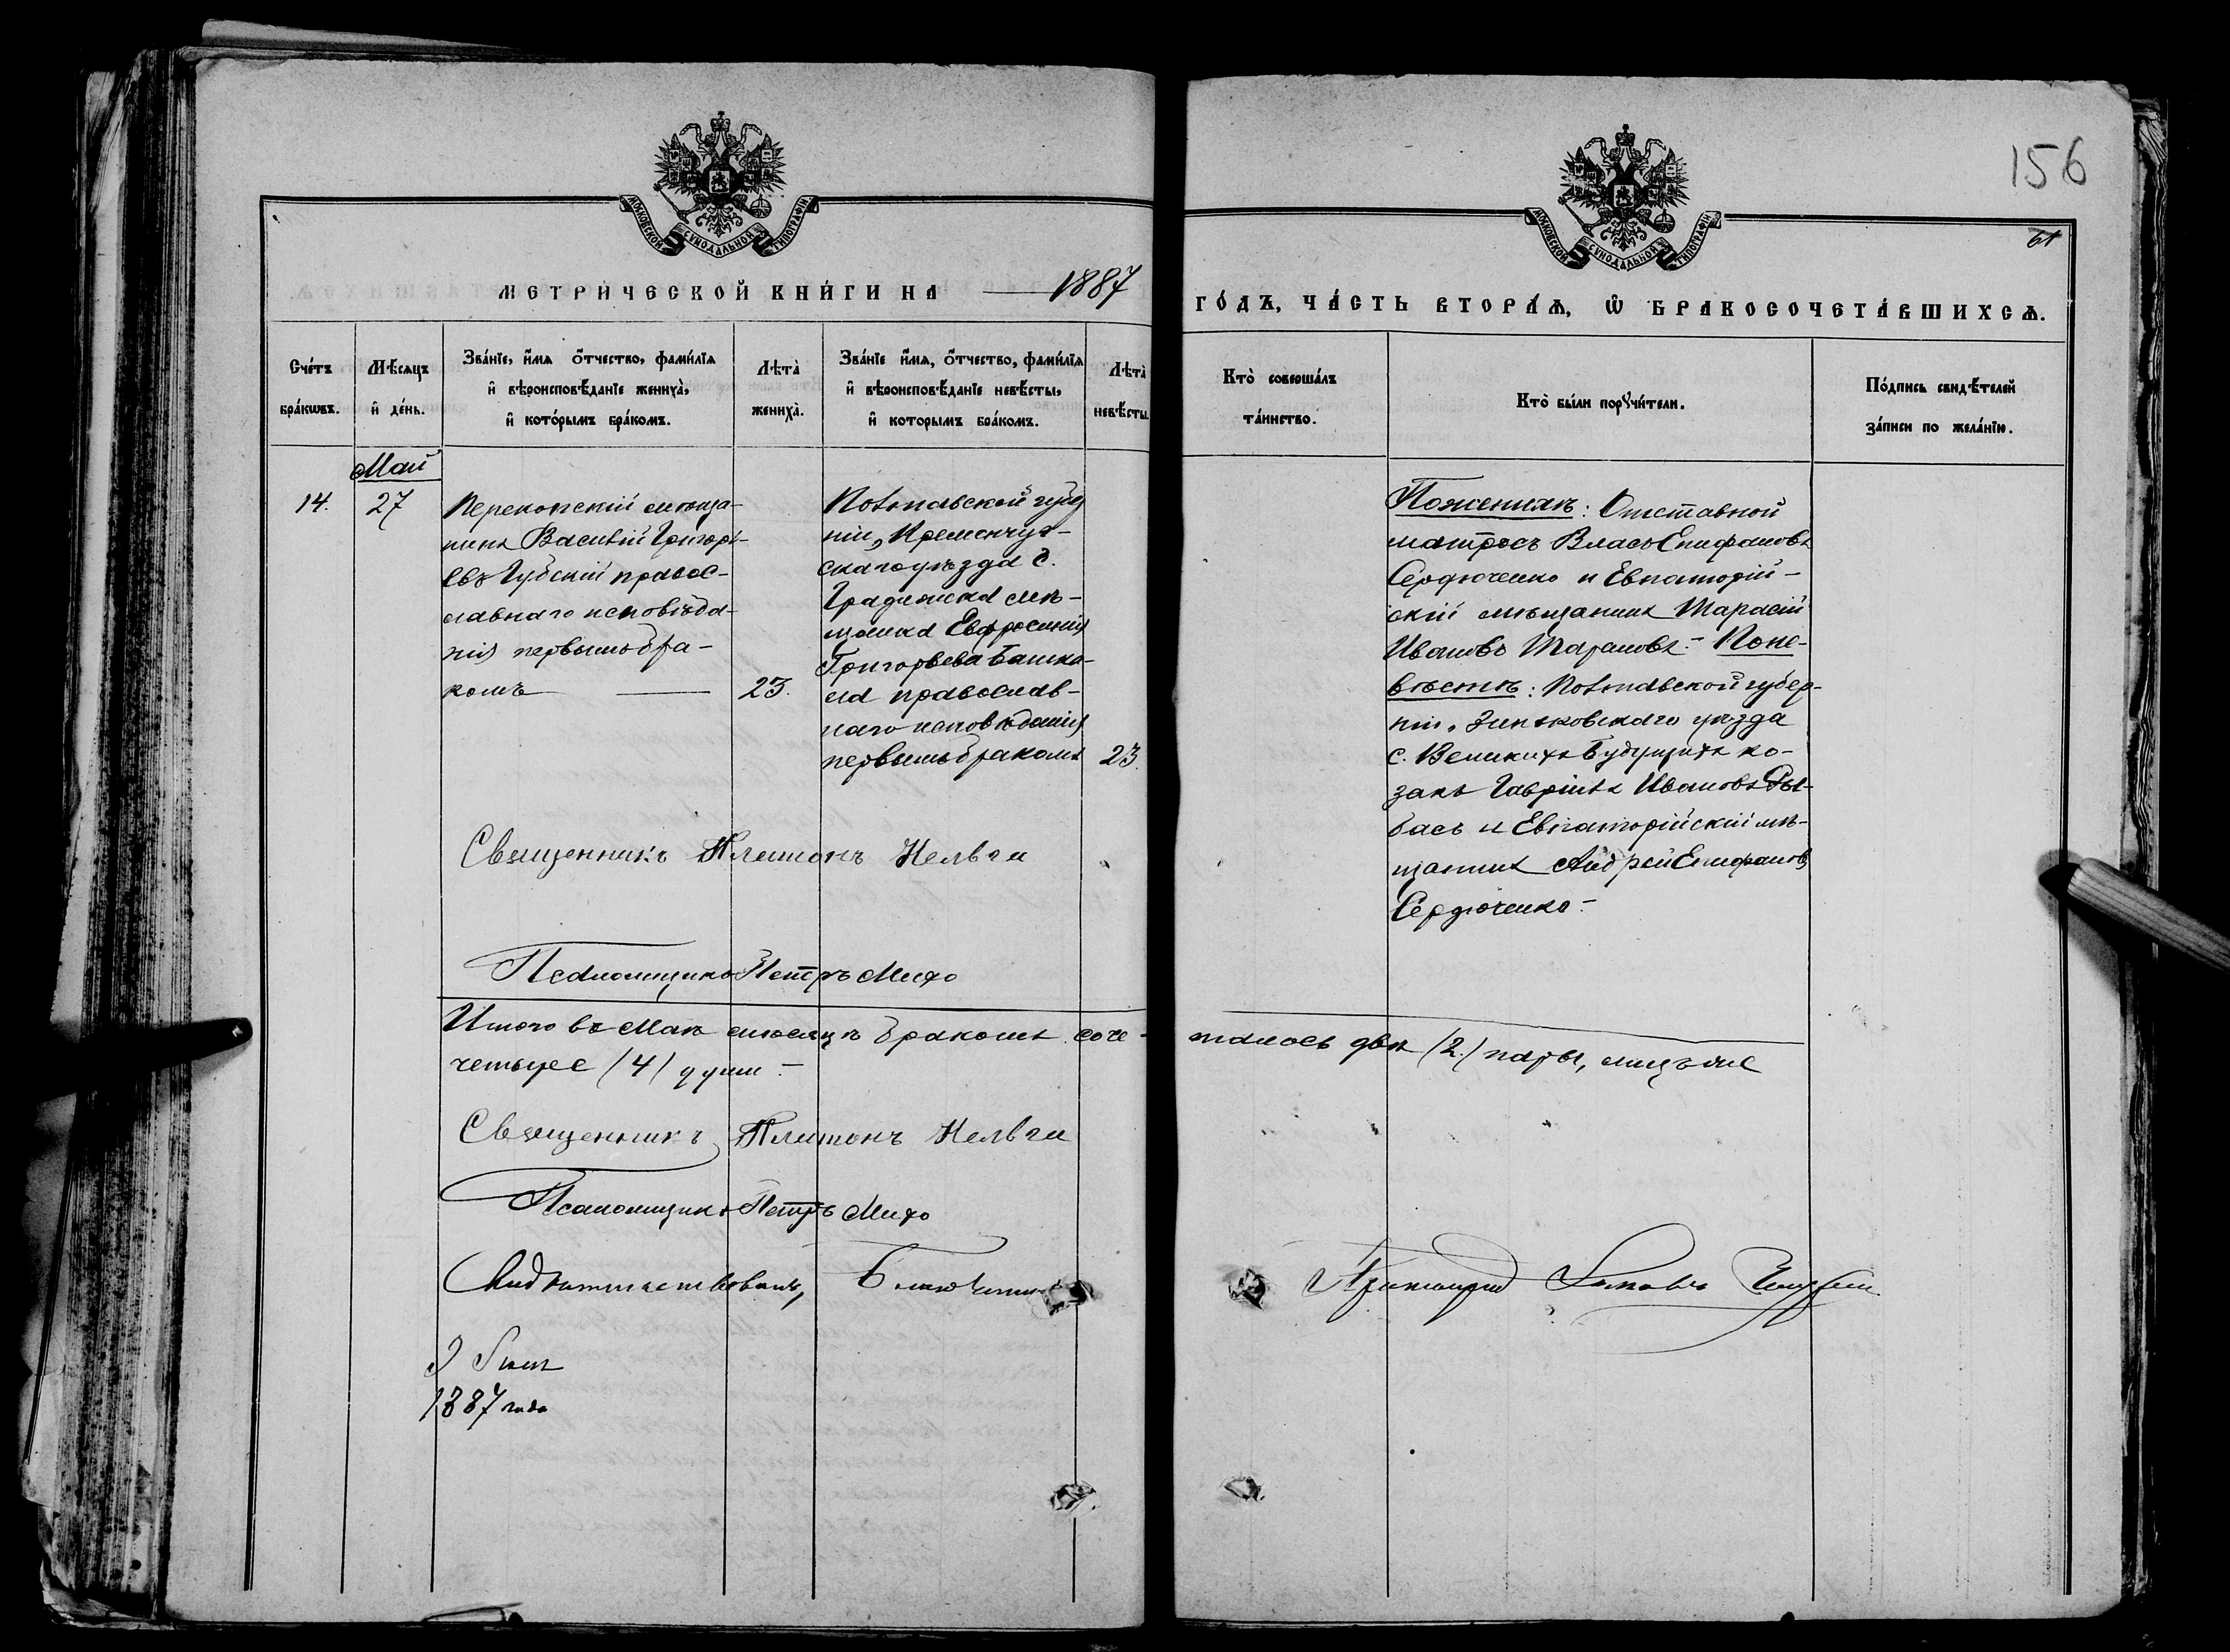 156
61
МОСКОВСКОЙ СѴНОДАЛЬНОЙ ТИПОГРАФІИ
МОСКОВСКОЙ СѴНОДАЛЬНОЙ ТИПОГРАФІИ
МЕТРИ́ЧЕСКОЙ КНИ́ГИ НА 1887
ГО́ДЪ, ЧА́СТЬ ВТОРА́Ѧ, Ѡ҆ БРАКОСОЧЕТА́ВШИХСѦ.
Сче́тъ бра́кѡвъ.
Мѣ́сяцъ и҆ де́нь.
Зва́нїе, и҆́мя о҆́тчество, фами́лїя
и҆ вѣроисповѣ́данїе жениха̀,
и҆ кото́рымъ бра́комъ.
Лѣта̀ жениха̀.
Зва́нїе и҆́мя, о҆́тчество, фами́лїя
и҆ вѣроисповѣ́данїе невѣ́сты,
и҆ которымъ бра́комъ.
Лѣта̀ невѣ́сты.
Кто̀ соверша́лъ та́инство.
Кто̀ бы́ли порꙋчи́тели.
По́дпись свидѣ́телей
за́писи по жела́нїю.
Май
14.
27
Перекопскій мѣща-
нинъ Василій Григорь-
евъ Губскій правос-
лавнаго исповѣда-
нія первымъ бра-
комъ
23.
Полтавской губер
ніи, Кременчуг-
скаго уѣзда с.
Градижска мѣ-
щанка Евфросинія
Григорьева Башка-
ла православ-
наго исповѣданія
первымъ бракомъ
23.
По женихѣ: Отставной
матросъ Власъ Епифановъ
Сердюченко и Евпаторій-
скій мѣщанинъ Тарасій
Ивановъ Тарановъ. - По не-
вѣстѣ: Полтавской губер-
ніи, Зиньковскаго уѣзда
с. Великихъ Будищъ ко-
закъ Гавріилъ Ивановъ Ры-
басъ и Евпаторійскій мѣ-
щанинъ Андрей Епифановъ
Сердюченко. -
Священникъ Платонъ
Псаломщикъ Петръ
Итого въ Маѣ мѣсяцѣ бракомъ соче-
талось двѣ (2.) пары, лицъ же
четыре (4) души. -
Священникъ Платонъ
Псаломщикъ Петръ
Свидѣтельствовалъ, Благочинный
1887 года